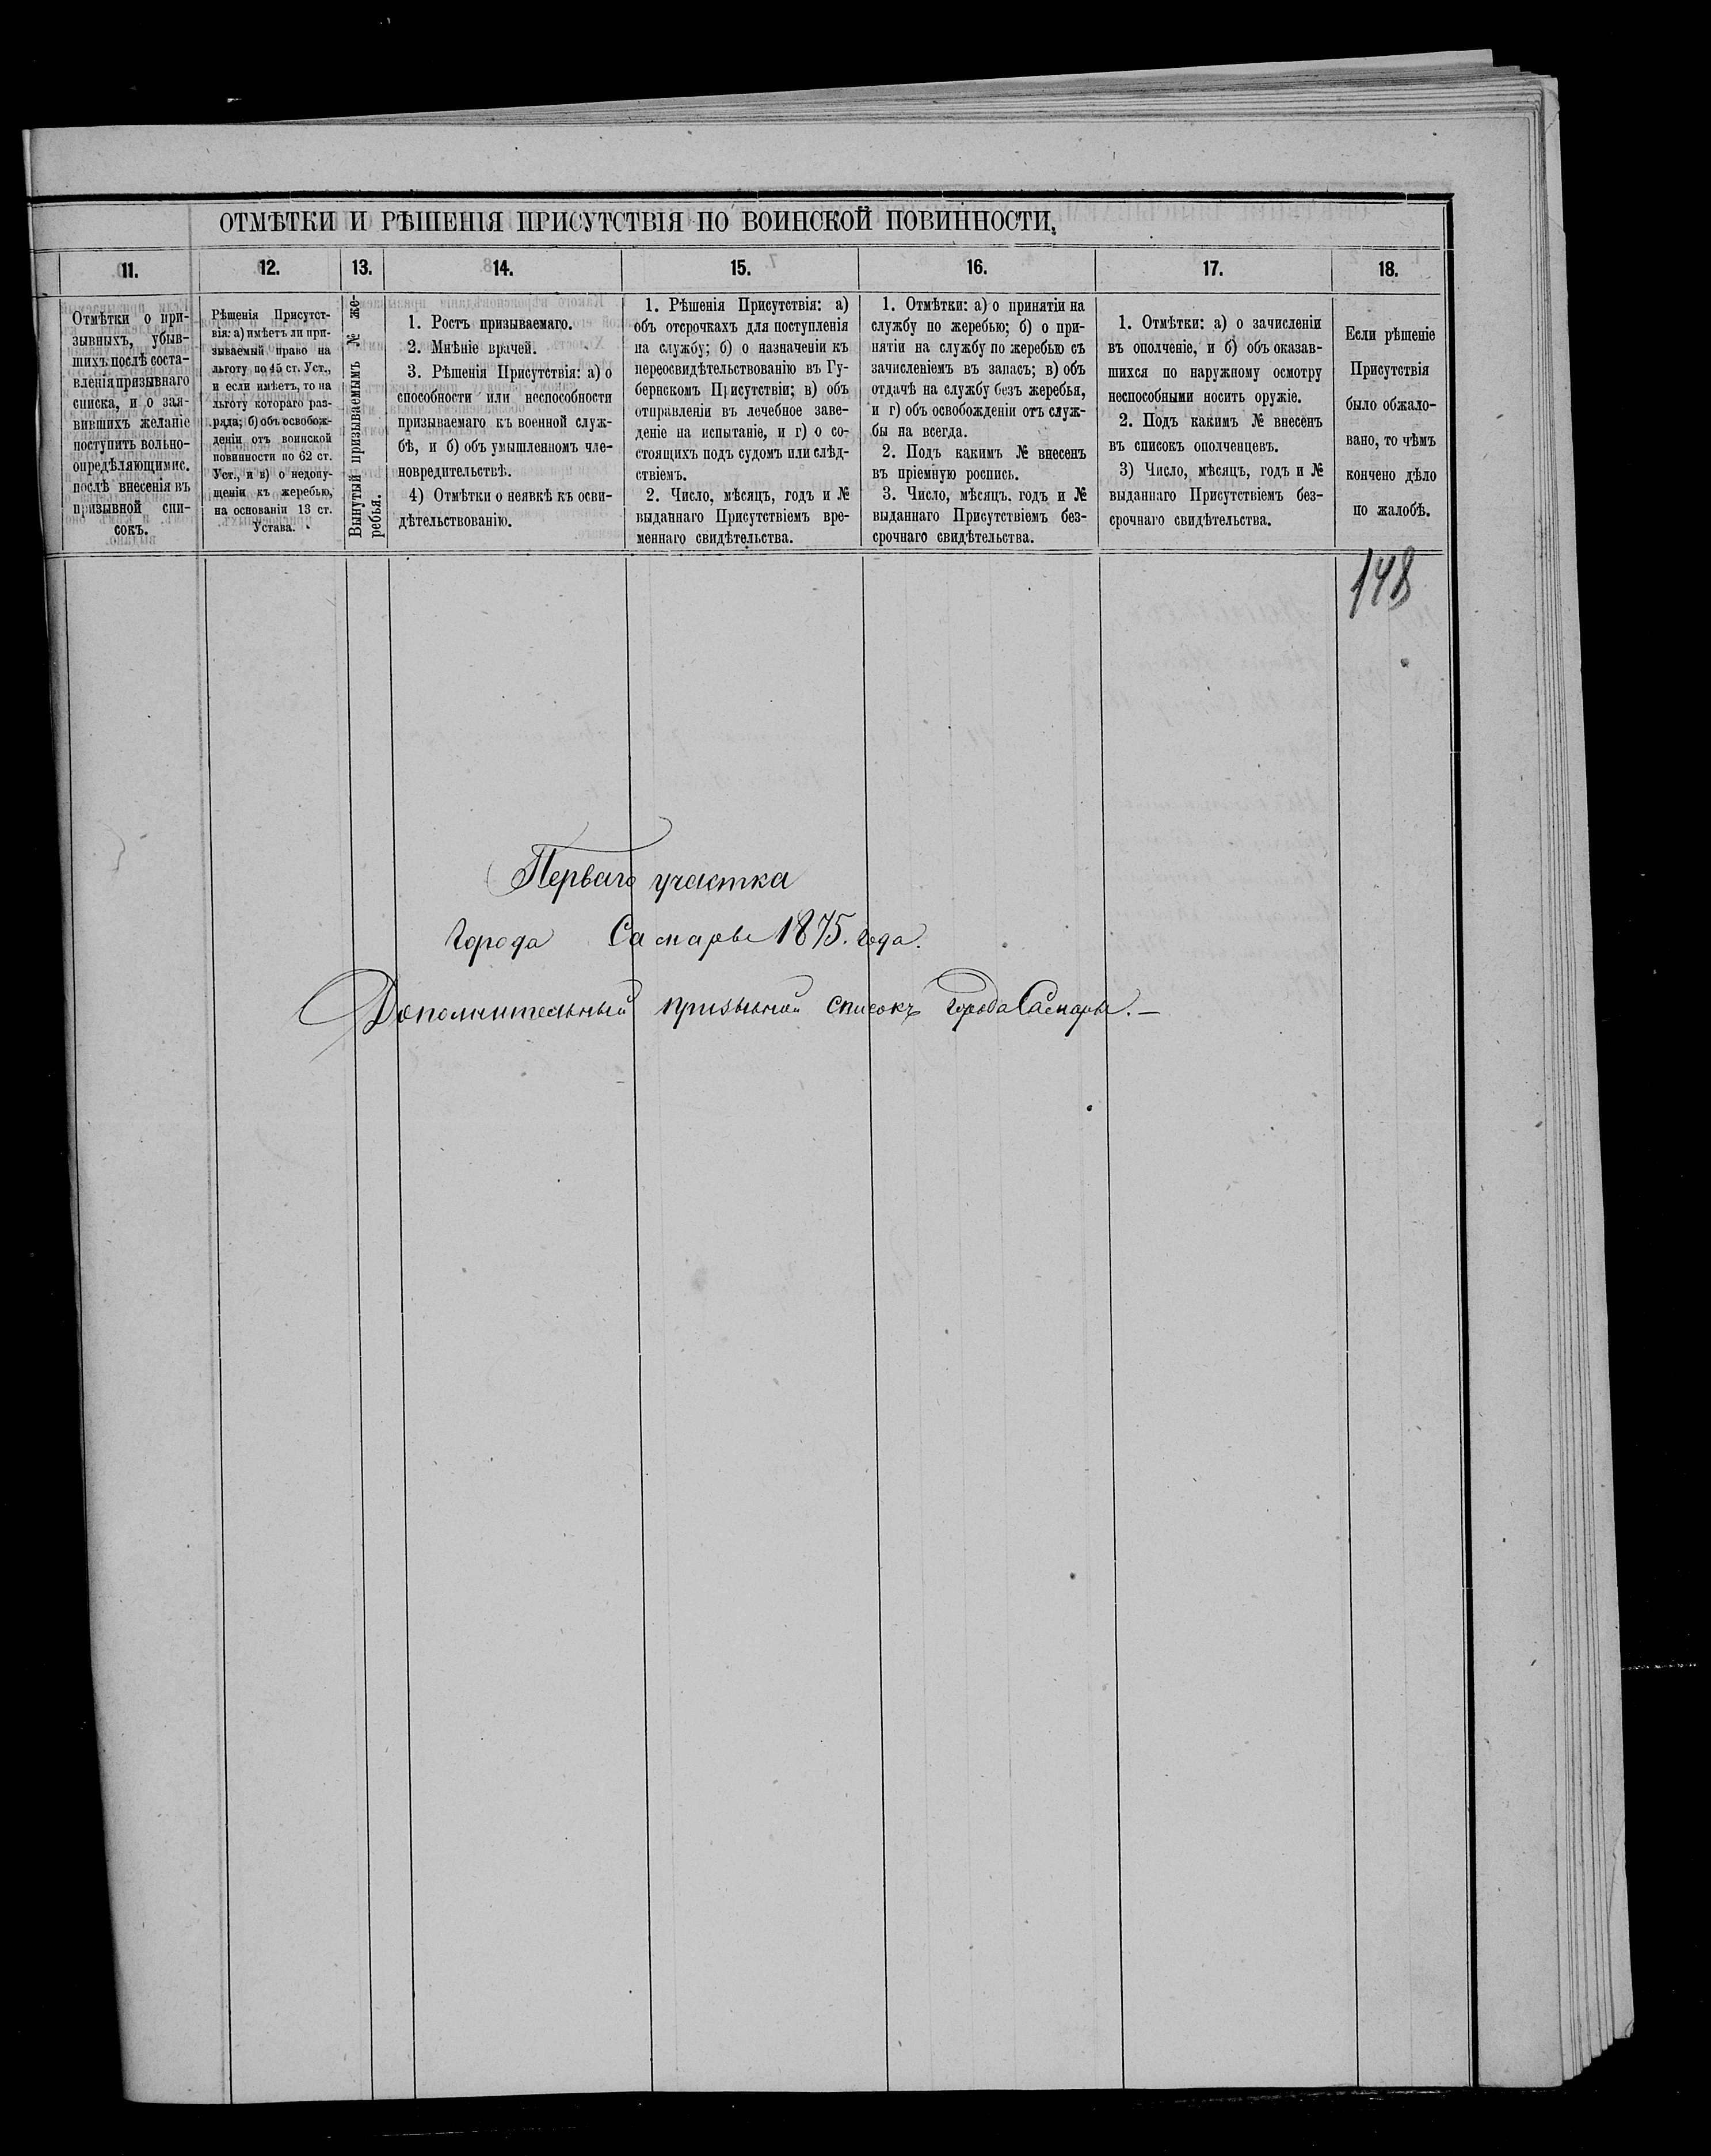 ОТМѢТКИ И РѢШЕНІЯ ПРИСУТСТВІЯ ПО ВОИНСКОЙ ПОВИННОСТИ.
11.
12.
13.
14.
15.
16.
17.
18.
Отмѣтки о при-
зывныхъ, убыв-
шихъ послѣ соста-
вленія призывнаго
списка, и о зая-
вившихъ желаніе
поступить вольно-
опредѣляющимис.
послѣ внесенія въ
призывной спи-
сокъ.
Рѣшенія Присутст-
вія: а) имѣетъ ли при-
зываемый право на
льготу по 45 ст. Уст.,
и если имѣетъ, то на
льготу котораго раз-
ряда; б) объ освобож-
деніи отъ воинской
повинности по 62 ст.
Уст., и в) о недопу-
щеніи къ жеребью,
на основаніи 13 ст.
Устава.
Вынутый призываемымъ № же-
ребья.
1. Ростъ призываемаго.
2. Мнѣніе врачей.
3. Рѣшенія Присутствія: а) о
способности или неспособности
призываемаго къ военной служ-
бѣ, и б) объ умышленномъ чле-
новредительствѣ.
4) Отмѣтки о неявкѣ къ осви-
дѣтельствованію.
1. Рѣшенія Присутствія: а)
объ отсрочкахъ для поступленія
на службу; б) о назначеніи къ
переосвидѣтельствованію въ Гу-
бернскомъ Присутствіи; в) объ
отправленіи въ лечебное заве-
деніе на испытаніе, и г) о со-
стоящихъ подъ судомъ или слѣд-
ствіемъ.
2. Число, мѣсяцъ, годъ и №
выданнаго Присутствіемъ вре-
меннаго свидѣтельства.
1. Отмѣтки: а) о принятіи на
службу по жеребью; б) о при-
нятіи на службу по жеребью съ
зачисленіемъ въ запасъ; в) объ
отдачѣ на службу безъ жеребья,
и г) объ освобожденіи отъ служ-
бы на всегда.
2. Подъ какимъ № внесенъ
въ пріемную роспись.
3. Число, мѣсяцъ, годъ и №
выданнаго Присутствіемъ без-
срочнаго свидѣтельства.
1. Отмѣтки: а) о зачисленіи
въ ополченіе, и б) объ оказав-
шихся по наружному осмотру
неспособными носить оружіе.
2. Подъ какимъ № внесенъ
въ списокъ ополченцевъ.
3) Число, мѣсяцъ, годъ и №
выданнаго Присутствіемъ без-
срочнаго свидѣтельства.
Если рѣшеніе
Присутствія
было обжало-
вано, то чѣмъ
кончено дѣло
по жалобѣ.
148
Перваго участка
города Самары 1875. года.
Дополнительный призывной списокъ города Самары.—